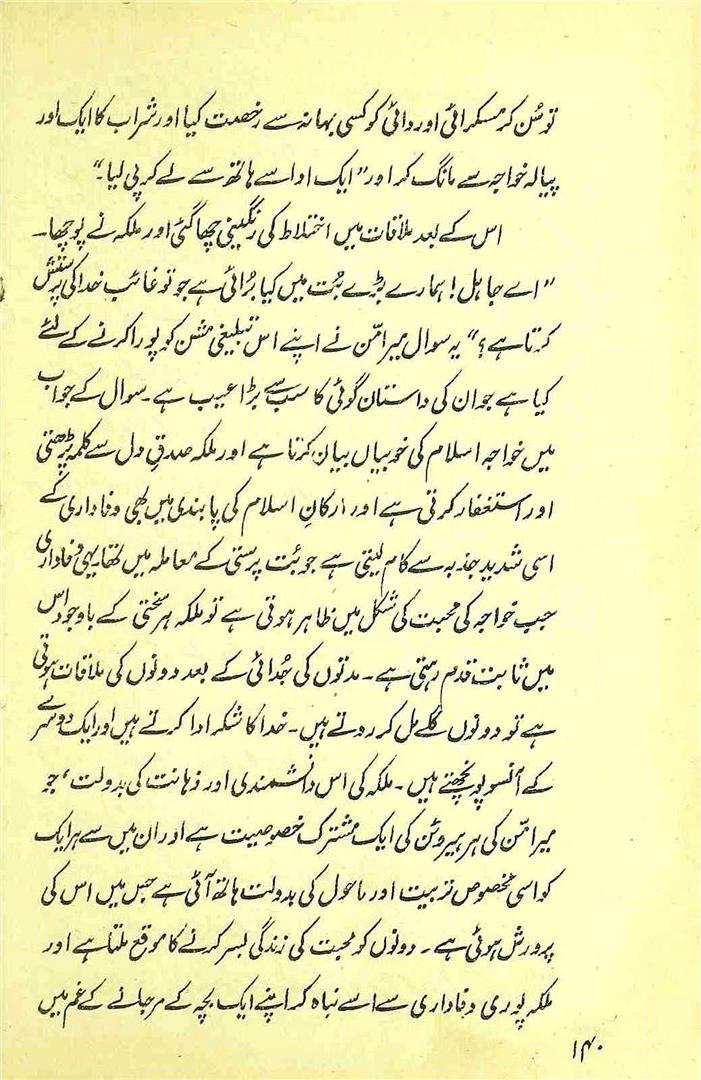 تو سُن کر مسکرائی اور دائی کو کسی بہانہ سے رخصت کیا اور شراب کا ایک اور
پیالہ خواجہ سے مانگ کر اور ”ایک ادا سے ہاتھ سے لے کر پی لیا۔“
اس کے بعد ملاقات میں اختلاط کی رنگینی چھا گئی اور ملکہ نے پوچھا۔
”اے جاہل! ہمارے بڑے بُت میں کیا بُرائی ہے جو تو غائب خدا کی پرستش
کرتا ہے؟“ یہ سوال میرامّن نے اپنے اس تبلیغی مشن کو پورا کرنے کے لئے
کیا ہے جو ان کی داستان گوئی کا سب سے بڑا عیب ہے۔ سوال کے جواب
میں خواجہ اسلام کی خوبیاں بیان کرتا ہے اور ملکہ صدقِ دل سے کلمہ پڑھتی
اور استغفار کرتی ہے اور ارکانِ اسلام کی پابندی میں بھی وفاداری کے
اسی شدید جذبہ سے کام لیتی ہے جو بُت پرستی کے معاملہ میں تھا یہی وفاداری
جب خواجہ کی محبت کی شکل میں ظاہر ہوتی ہے تو ملکہ ہر سختی کے باوجود اس
میں ثابت قدم رہتی ہے۔ مدتوں کی جُدائی کے بعد دونوں کی ملاقات ہوتی
ہے تو دونوں گلے مل کر روتے ہیں۔ خدا کا شکر ادا کرتے ہیں اور ایک دوسرے
کے آنسو پونچھتے ہیں۔ ملکہ کی اس دانشمندی اور ذہانت کی بدولت، جو
میرامّن کی ہر ہیروئن کی ایک مشترک خصوصیت ہے اور ان میں سے ہر ایک
کو اسی مخصوص تربیت اور ماحول کی بدولت ہاتھ آئی ہے جس میں اس کی
پرورش ہوئی ہے۔ دونوں کو محبت کی زندگی بسر کرنے کا موقع ملتا ہے اور
ملکہ پوری وفاداری سے اسے نباہ کر اپنے ایک بچہ کے مر جانے کے غم میں
۱۴۰